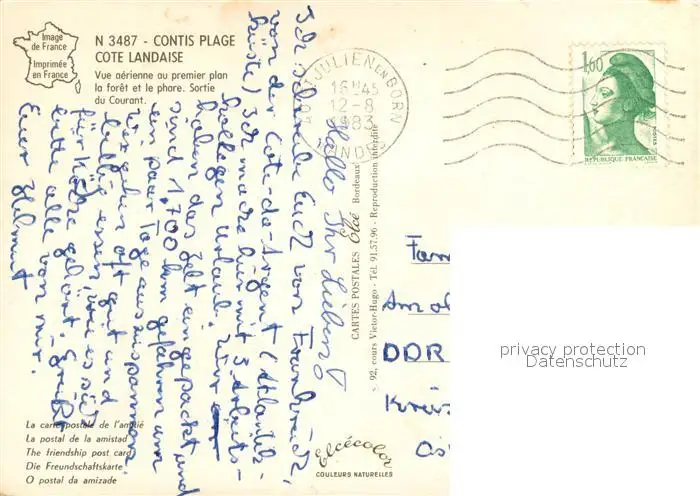 Image
de France
Imprimée
en France
N 3487 - CONTIS PLAGE
COTE LANDAISE
Vue aérienne au premier plan
la forêt et le phare. Sortie
du Courant.
ST JULIEN EN BORN
16 H 45
12-8
1983
LANDES
1,60
POSTES
REPUBLIQUE FRANÇAISE
Hallo Ihr Lieben!
Ich schreibe Euch von Frankreich,
von der Cote-de-Argent (Atlantik-
küste) Ich mache hier mit 3 Arbeits-
kollegen Urlaub. Wir
haben das Zelt eingepackt und
sind 1.700 km gefahren um
ein paar Tage auszuspannen.
Wir gehen oft gut und
essen, wie es sich
für gehört. Es grüßt
bitte alle von mir.
Euer Helmut
CARTES POSTALES Elcé Bordeaux
92, cours Victor-Hugo - Tél. 91.57.96 - Reproduction interdite
Fam
Am
DDR
Kreis
privacy protection
Datenschutz
La carte postale de l'amitié
La postal de la amistad
The friendship post card
Die Freundschaftskarte
O postal da amizade
Elcécolor
COULEURS NATURELLES